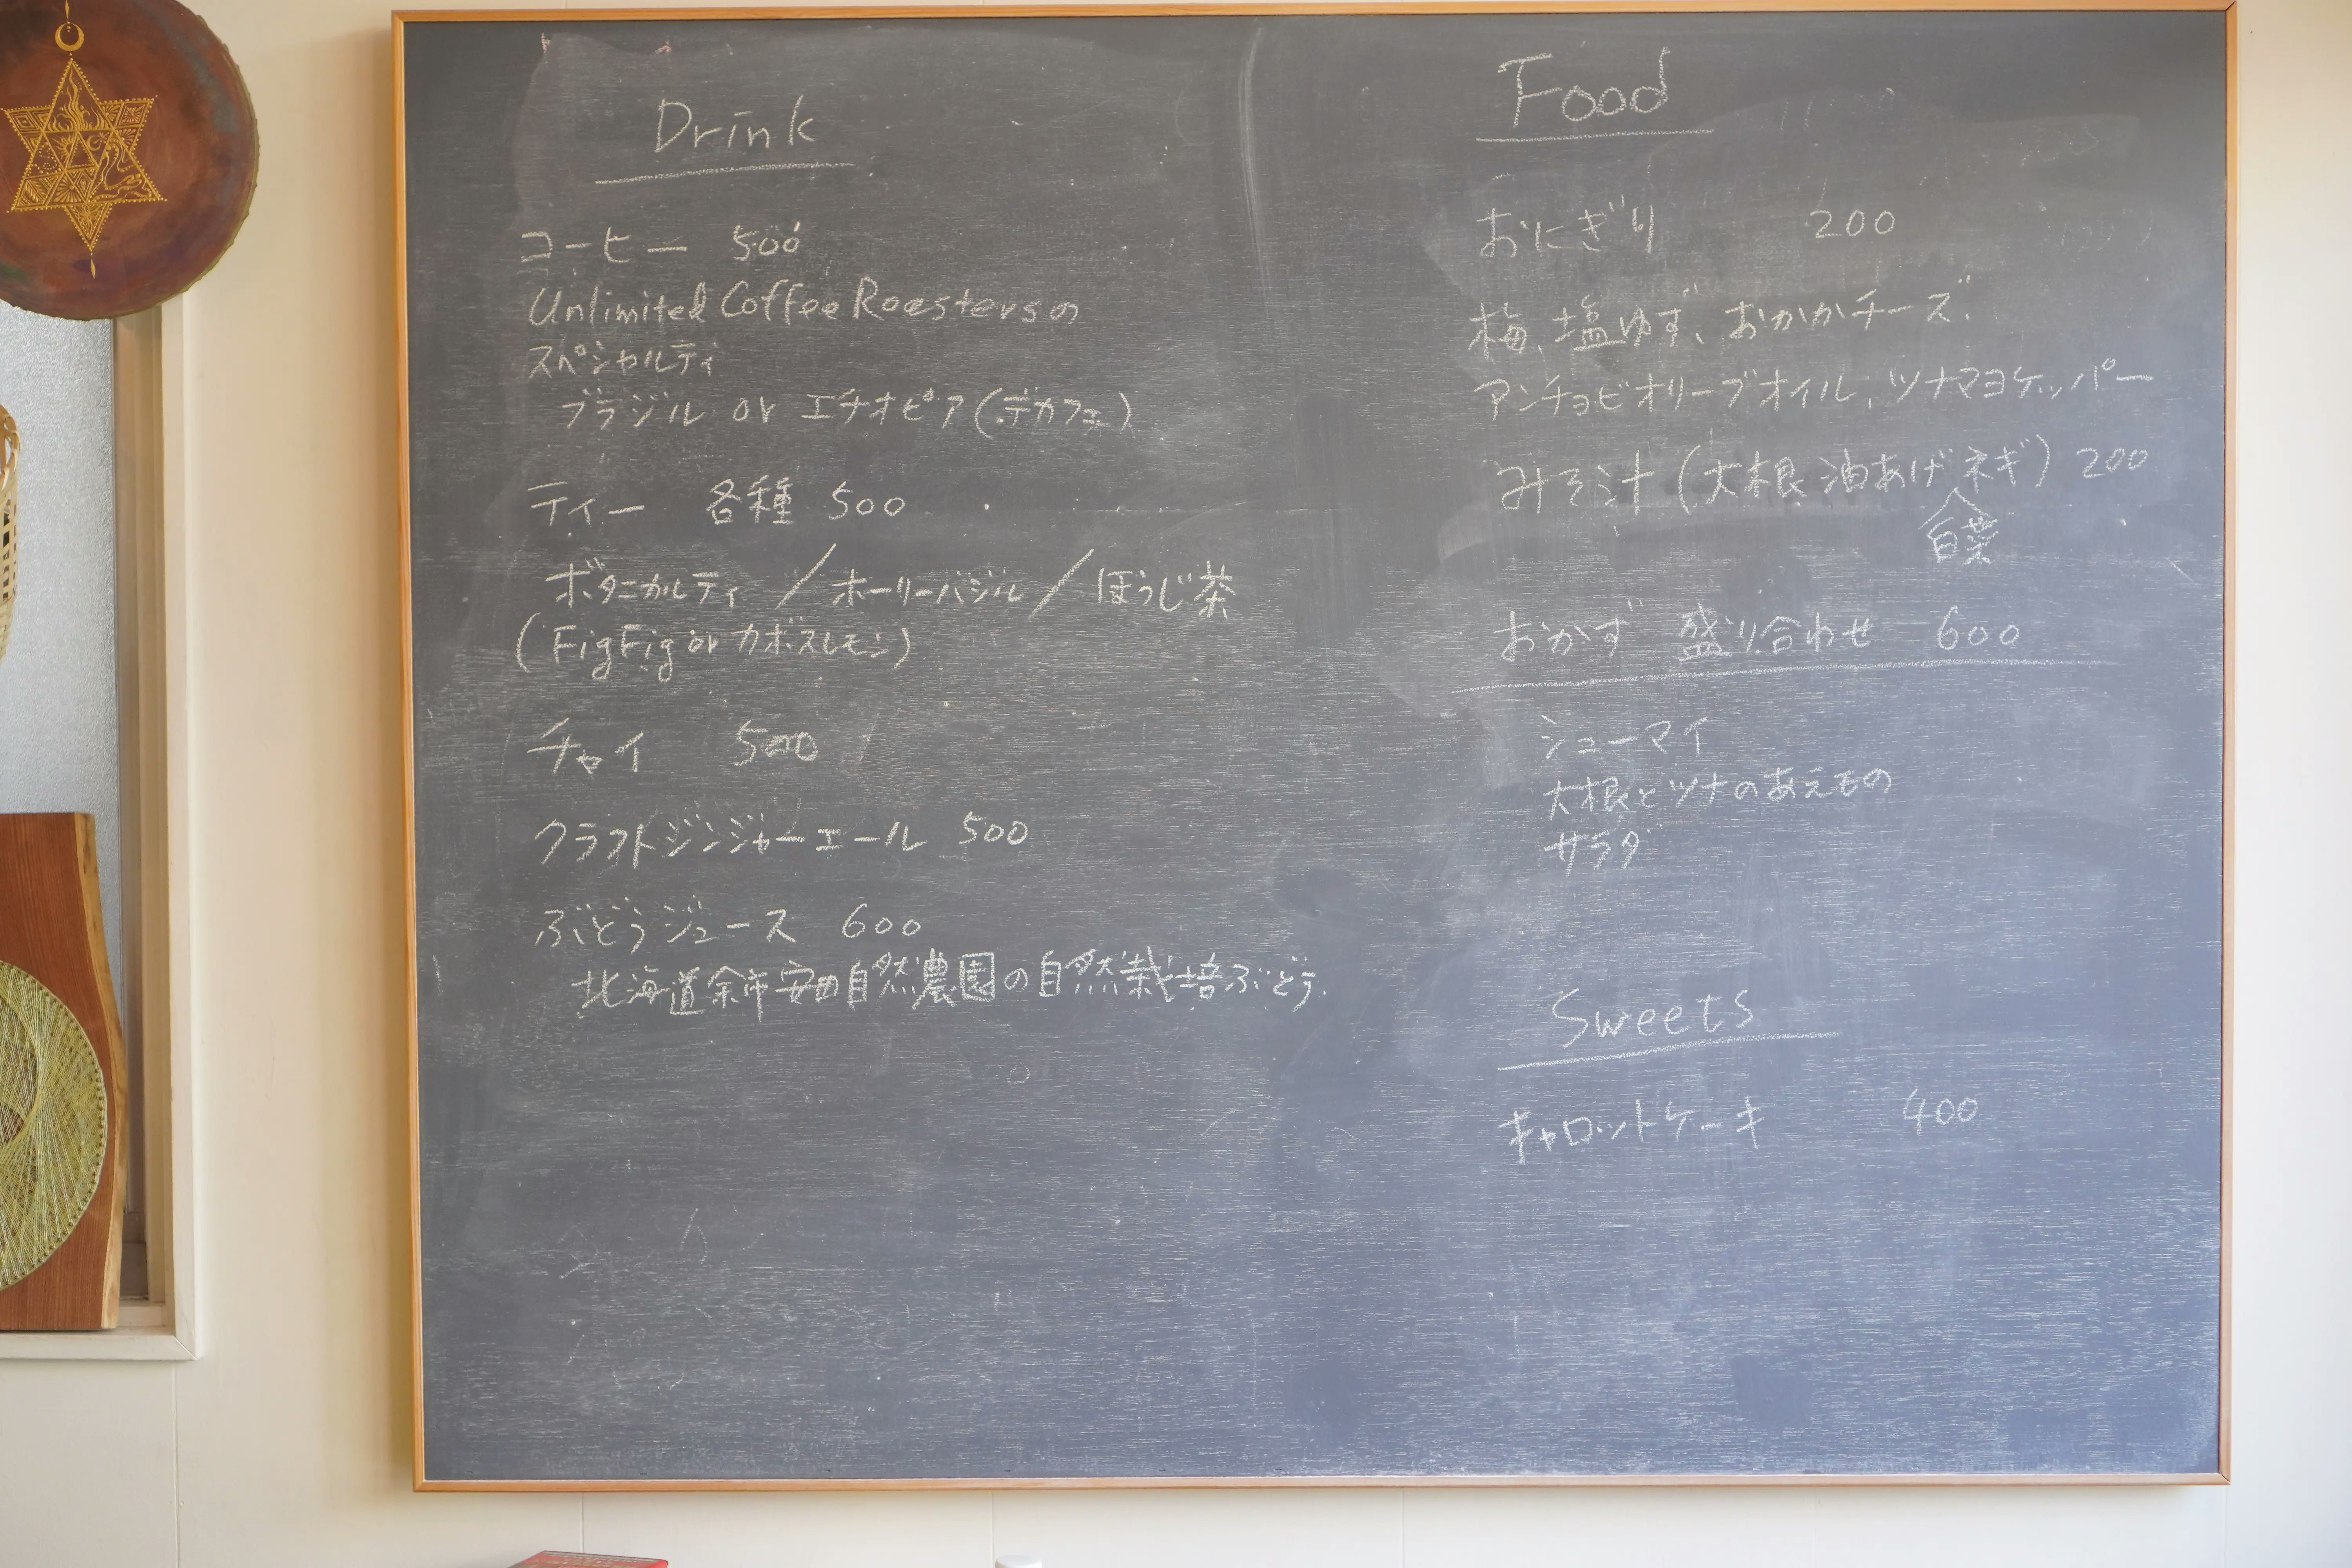 Drink
コーヒー 500
Unlimited Coffee Roastersの
スペシャルティ
ブラジル or エチオピア(デカフェ)
ティー 各種 500
ボタニカルティ / ホーリーバジル / ほうじ茶
(FigFig or カボスレモン)
チャイ 500
クラフトジンジャーエール 500
ぶどうジュース 600
北海道余市安田自然農園の自然栽培ぶどう.
Food
おにぎり 200
梅、塩ゆず、おかかチーズ、
アンチョビオリーブオイル、ツナマヨケッパー
みそ汁(大根 油あげ ネギ) 200
白菜
おかず 盛り合わせ 600
シューマイ
大根とツナのあえもの
サラダ
Sweets
キャロットケーキ 400